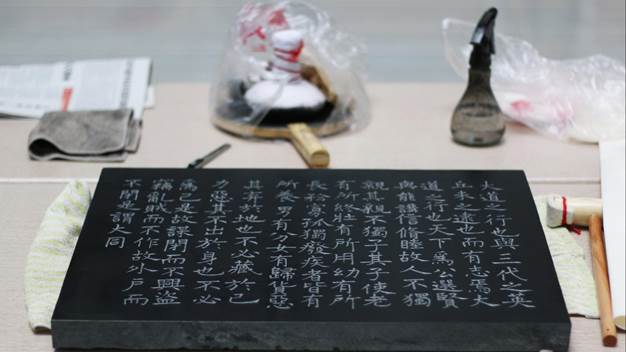 大道之行也與三代之英
丘未之逮也而有志焉大
道之行也天下為公選賢
與能講信脩睦故人不獨
親其親不獨子其子使老
有所終壯有所用幼有所
長矜寡孤獨廢疾者皆有
所養男有分女有歸貨惡
其弃於地也不必藏於己
力惡其不出於身也不必
為己是故謀閉而不興盜
竊亂賊而不作故外戶而
不閉是謂大同